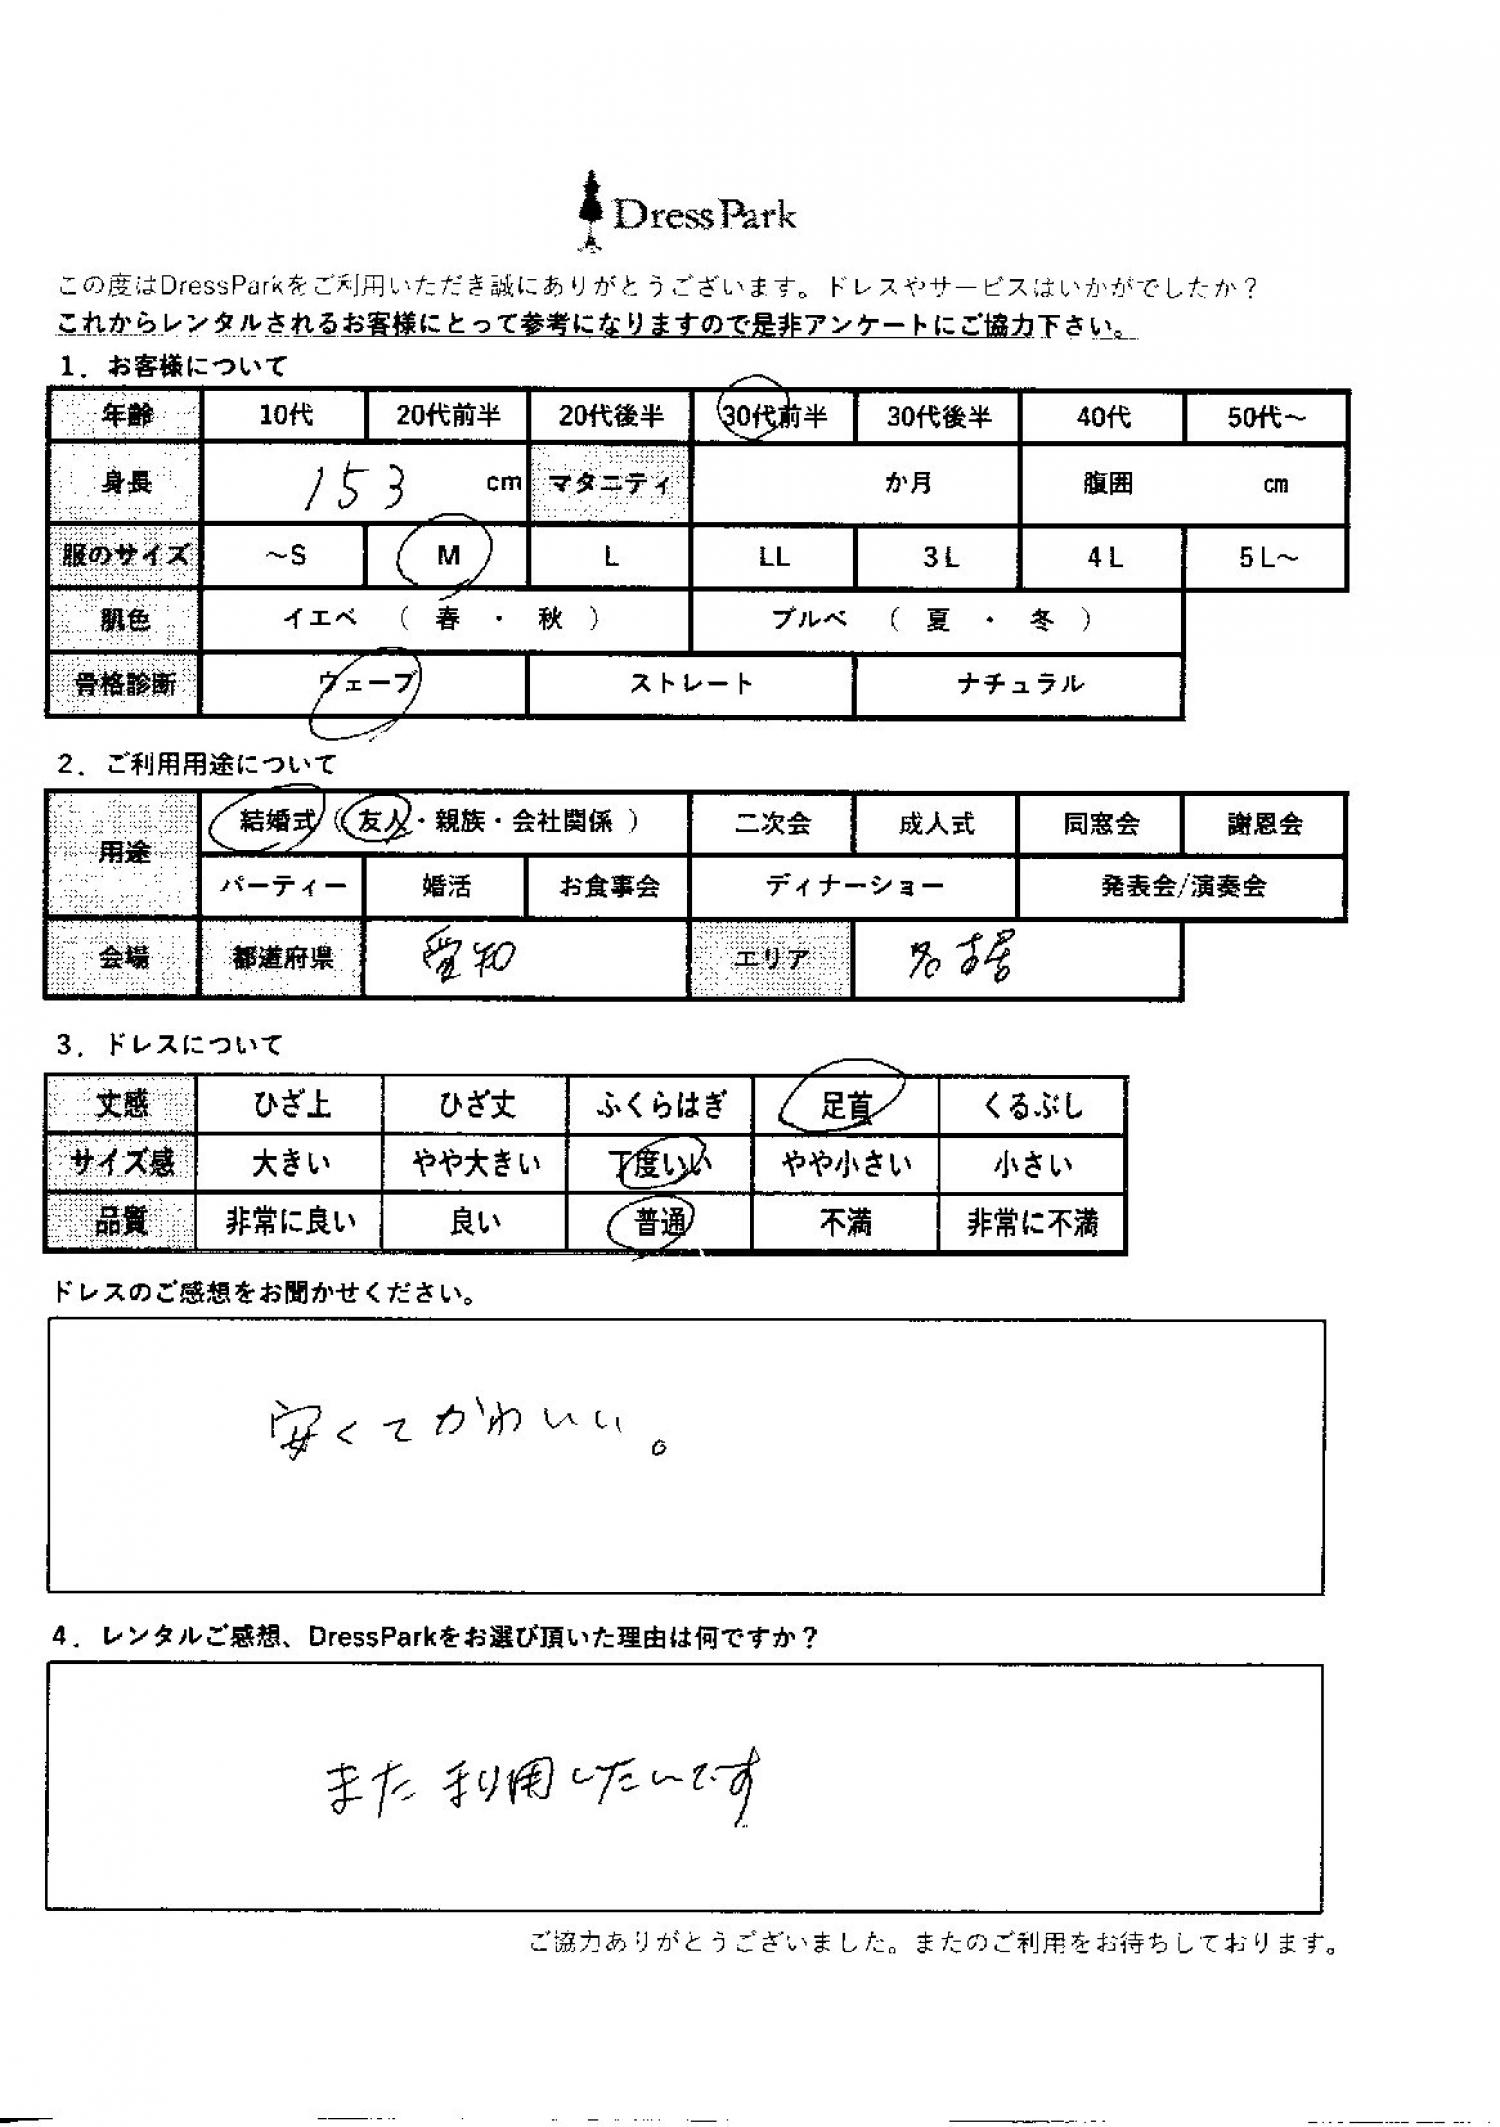 DressPark
この度はDressParkをご利用いただき誠にありがとうございます。ドレスやサービスはいかがでしたか？
これからレンタルされるお客様にとって参考になりますので是非アンケートにご協力下さい。
1．お客様について
年齢 10代 20代前半 20代後半 30代前半 30代後半 40代 50代～
身長 153 cm マタニティ か月 腹囲 cm
服のサイズ ～S M L LL 3L 4L 5L～
肌色 イエベ （ 春 ・ 秋 ） ブルベ （ 夏 ・ 冬 ）
骨格診断 ウェーブ ストレート ナチュラル
2．ご利用用途について
用途 結婚式（友人・親族・会社関係） 二次会 成人式 同窓会 謝恩会
パーティー 婚活 お食事会 ディナーショー 発表会/演奏会
会場 都道府県 愛知 エリア 名古屋
3．ドレスについて
丈感 ひざ上 ひざ丈 ふくらはぎ 足首 くるぶし
サイズ感 大きい やや大きい 丁度いい やや小さい 小さい
品質 非常に良い 良い 普通 不満 非常に不満
ドレスのご感想をお聞かせください。
安くてかわいい。
4．レンタルご感想、DressParkをお選び頂いた理由は何ですか？
また利用したいです
ご協力ありがとうございました。またのご利用をお待ちしております。